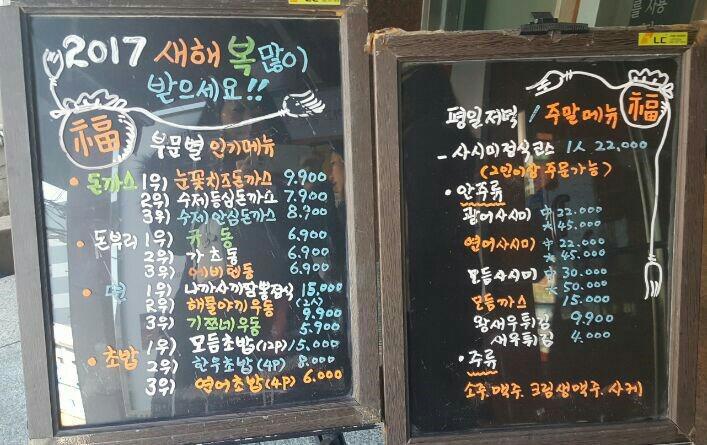 2017 새해 복 많이
받으세요!!
福
부문별 인기메뉴
• 돈까스 1위) 눈꽃치즈돈까스 9.900
2위) 수제등심돈까스 7.900
3위) 수제안심돈까스 8.900
돈부리 1위) 규동 6.900
2위) 가츠동 6.900
3위) 에비텐동 6.900
• 면 1위) 나가사끼짬뽕정식 15,000
(2人)
2위) 해물야끼우동 9.900
3위) 기쯔네우동 5.900
• 초밥 1위) 모듬초밥(12P) 15.000
2위) 한우초밥(4P) 8.000
3위) 연어초밥(4P) 6.000
LC
평일저녁 / 주말메뉴 福
- 사시미정식코스 1人 22,000
(2인이상 주문가능)
• 안주류
광어사시미 中 32.000
大 45.000
연어사시미 中 22.000
大 45.000
모듬사시미 中 30.000
大 50.000
모듬까스 15.000
왕새우튀김 9.900
새우튀김 4.000
• 주류
소주. 맥주. 크림생맥주. 사케
LC